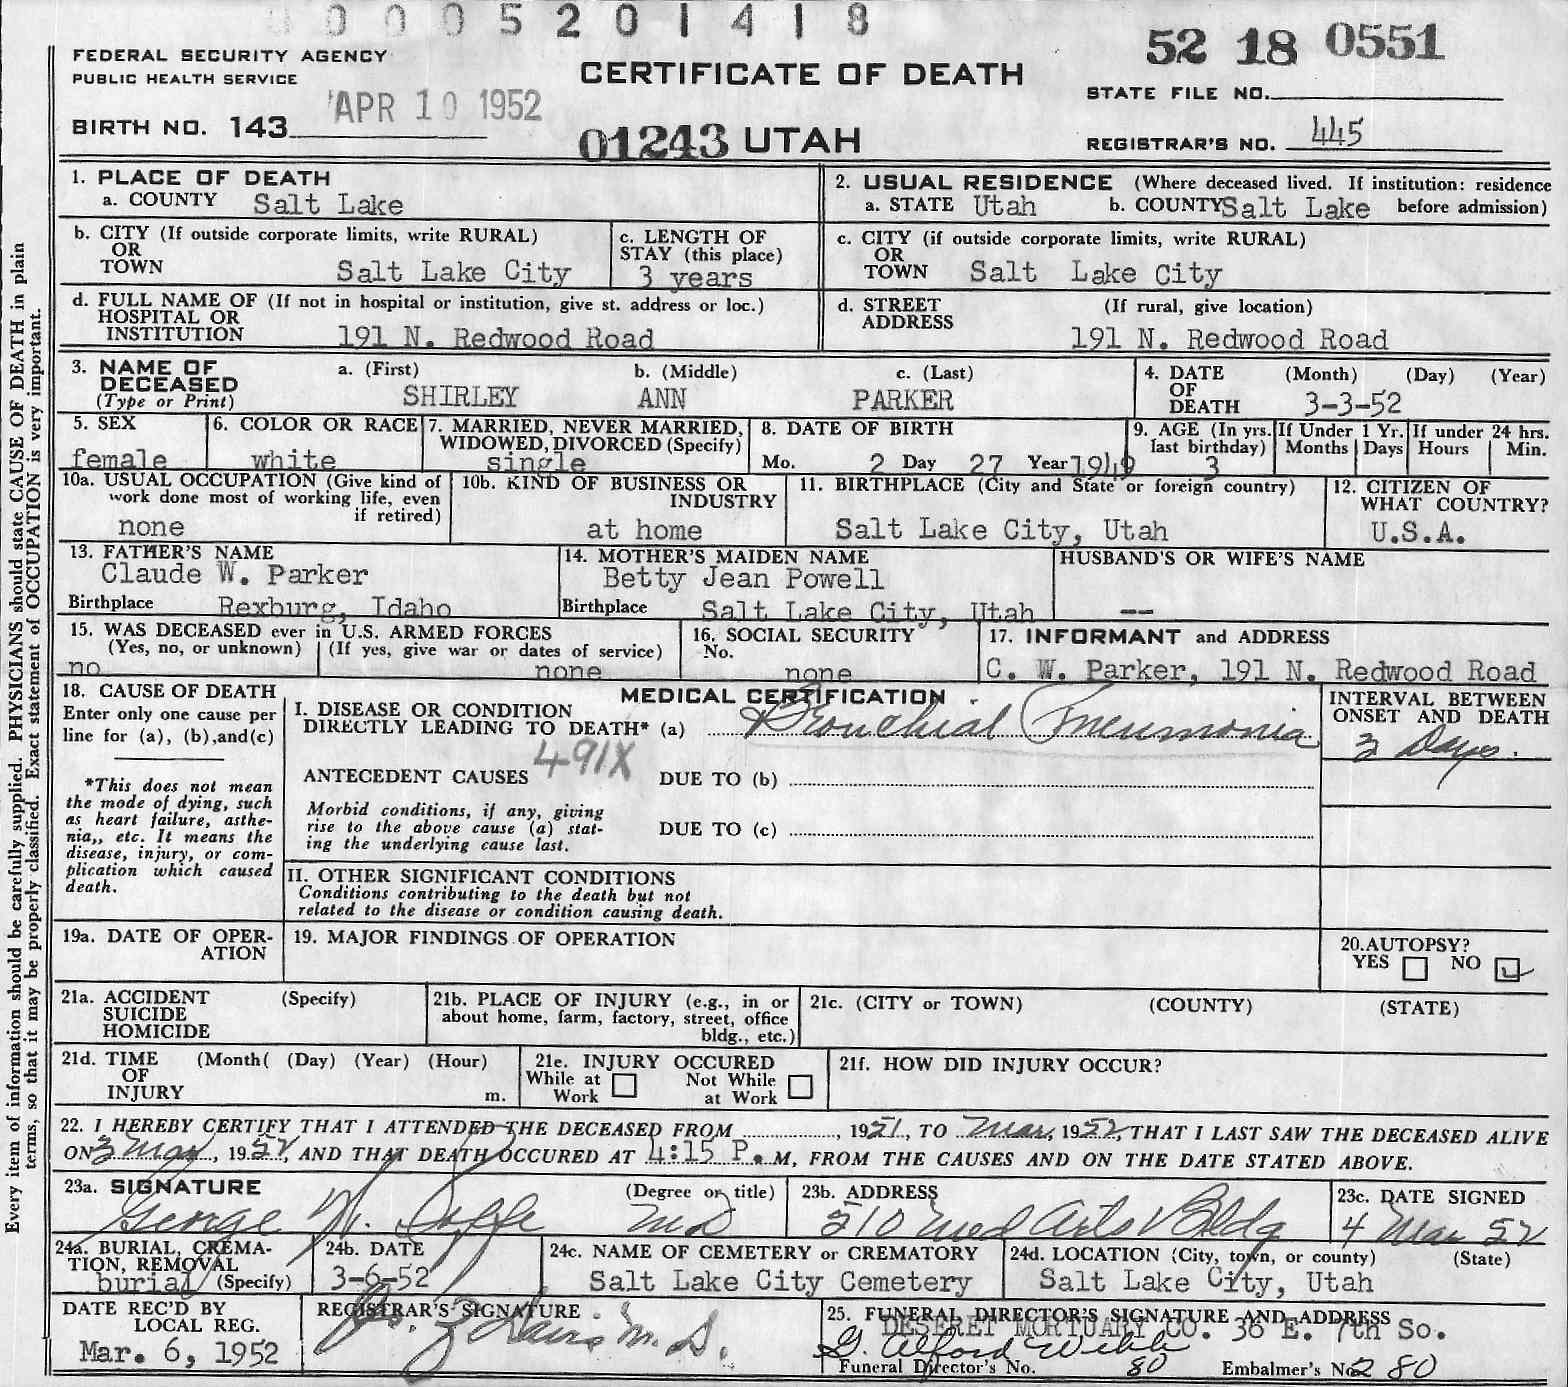 0 0 0 5 2 0 1 4 1 8
FEDERAL SECURITY AGENCY
PUBLIC HEALTH SERVICE
CERTIFICATE OF DEATH
52 18 0551
STATE FILE NO.
APR 10 1952
BIRTH NO. 143
01243 UTAH
REGISTRAR'S NO. 445
1. PLACE OF DEATH
a. COUNTY Salt Lake
2. USUAL RESIDENCE (Where deceased lived. If institution: residence
a. STATE Utah b. COUNTY Salt Lake before admission)
b. CITY (If outside corporate limits, write RURAL)
OR
TOWN Salt Lake City
c. LENGTH OF
STAY (this place)
3 years
c. CITY (if outside corporate limits, write RURAL)
OR
TOWN Salt Lake City
d. FULL NAME OF (If not in hospital or institution, give st. address or loc.)
HOSPITAL OR
INSTITUTION 191 N. Redwood Road
d. STREET (If rural, give location)
ADDRESS 191 N. Redwood Road
3. NAME OF
DECEASED
(Type or Print)
a. (First) b. (Middle) c. (Last)
SHIRLEY ANN PARKER
4. DATE (Month) (Day) (Year)
OF
DEATH 3-3-52
5. SEX
female
6. COLOR OR RACE
white
7. MARRIED, NEVER MARRIED,
WIDOWED, DIVORCED (Specify)
single
8. DATE OF BIRTH
Mo. 2 Day 27 Year 1949
9. AGE (In yrs.
last birthday)
3
If Under 1 Yr.
Months Days
If under 24 hrs.
Hours Min.
10a. USUAL OCCUPATION (Give kind of
work done most of working life, even
if retired)
none
10b. KIND OF BUSINESS OR
INDUSTRY
at home
11. BIRTHPLACE (City and State or foreign country)
Salt Lake City, Utah
12. CITIZEN OF
WHAT COUNTRY?
U.S.A.
13. FATHER'S NAME
Claude W. Parker
Birthplace Rexburg, Idaho
14. MOTHER'S MAIDEN NAME
Betty Jean Powell
Birthplace Salt Lake City, Utah
HUSBAND'S OR WIFE'S NAME
--
15. WAS DECEASED ever in U.S. ARMED FORCES
(Yes, no, or unknown) (If yes, give war or dates of service)
no none
16. SOCIAL SECURITY
No.
none
17. INFORMANT and ADDRESS
C. W. Parker, 191 N. Redwood Road
18. CAUSE OF DEATH
Enter only one cause per
line for (a), (b), and (c)
*This does not mean
the mode of dying, such
as heart failure, asthe-
nia,, etc. It means the
disease, injury, or com-
plication which caused
death.
MEDICAL CERTIFICATION
I. DISEASE OR CONDITION
DIRECTLY LEADING TO DEATH* (a) Bronchial Pneumonia
INTERVAL BETWEEN
ONSET AND DEATH
Days.
491X
ANTECEDENT CAUSES DUE TO (b)
Morbid conditions, if any, giving
rise to the above cause (a) stat-
ing the underlying cause last.
DUE TO (c)
II. OTHER SIGNIFICANT CONDITIONS
Conditions contributing to the death but not
related to the disease or condition causing death.
19a. DATE OF OPER-
ATION
19. MAJOR FINDINGS OF OPERATION
20. AUTOPSY?
YES NO
21a. ACCIDENT (Specify)
SUICIDE
HOMICIDE
21b. PLACE OF INJURY (e.g., in or
about home, farm, factory, street, office
bldg., etc.)
21c. (CITY or TOWN) (COUNTY) (STATE)
21d. TIME (Month( (Day) (Year) (Hour)
OF
INJURY m.
21e. INJURY OCCURED
While at Work Not While at Work
21f. HOW DID INJURY OCCUR?
22. I HEREBY CERTIFY THAT I ATTENDED THE DECEASED FROM , 1951, TO Mar, 1952, THAT I LAST SAW THE DECEASED ALIVE
ON 3 Mar, 1952, AND THAT DEATH OCCURED AT 4:15 P. M, FROM THE CAUSES AND ON THE DATE STATED ABOVE.
23a. SIGNATURE (Degree or title)
George MD
23b. ADDRESS
510 Med Arts Bldg
23c. DATE SIGNED
4 Mar 52
24a. BURIAL, CREMA-
TION, REMOVAL
burial (Specify)
24b. DATE
3-6-52
24c. NAME OF CEMETERY or CREMATORY
Salt Lake City Cemetery
24d. LOCATION (City, town, or county) (State)
Salt Lake City, Utah
DATE REC'D BY
LOCAL REG.
Mar. 6, 1952
REGISTRAR'S SIGNATURE
M.D.
25. FUNERAL DIRECTOR'S SIGNATURE AND ADDRESS
DESERET MORTUARY CO. 36 E. 7th So.
G. Alford Webb
Funeral Director's No. 80 Embalmer's No. 280
Every item of information should be carefully supplied. PHYSICIANS should state CAUSE OF DEATH in plain
terms, so that it may be properly classified. Exact statement of OCCUPATION is very important.